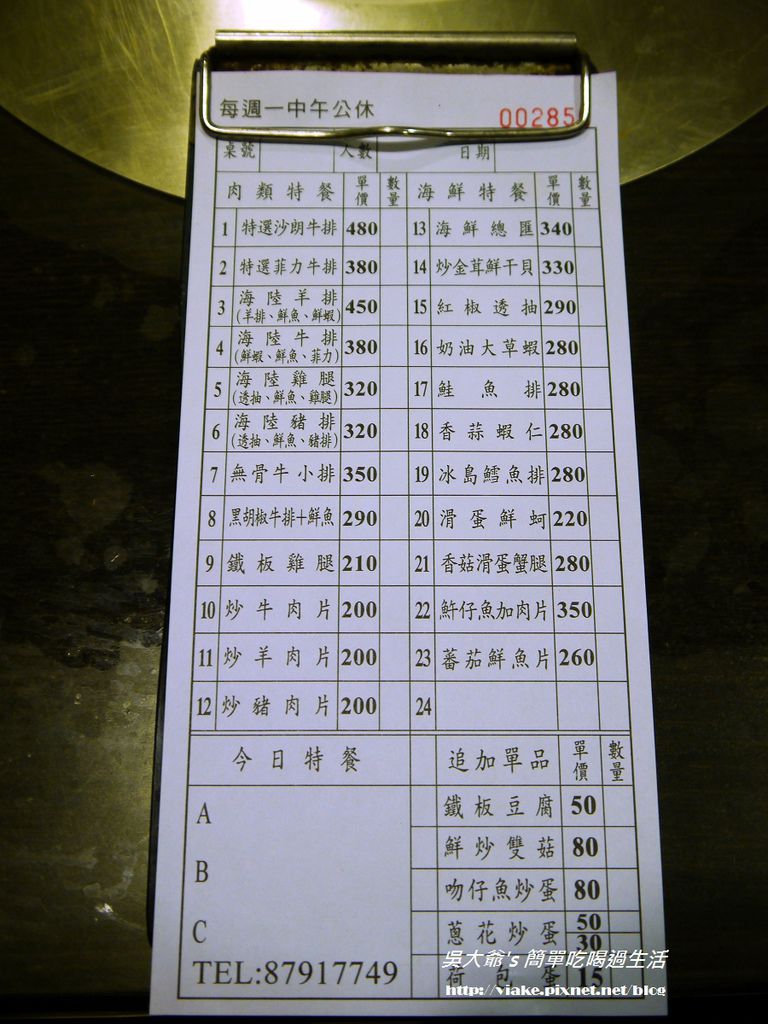 每週一中午公休
00285
桌號 人數 日期
肉類特餐 單價 數量 海鮮特餐 單價 數量
1 特選沙朗牛排 480 13 海鮮總匯 340
2 特選菲力牛排 380 14 炒金茸鮮干貝 330
3 海陸羊排 (羊排、鮮魚、鮮蝦) 450 15 紅椒透抽 290
4 海陸牛排 (鮮蝦、鮮魚、菲力) 380 16 奶油大草蝦 280
5 海陸雞腿 (透抽、鮮魚、雞腿) 320 17 鮭魚排 280
6 海陸豬排 (透抽、鮮魚、豬排) 320 18 香蒜蝦仁 280
7 無骨牛小排 350 19 冰島鱈魚排 280
8 黑胡椒牛排+鮮魚 290 20 滑蛋鮮蚵 220
9 鐵板雞腿 210 21 香菇滑蛋蟹腿 280
10 炒牛肉片 200 22 魩仔魚加肉片 350
11 炒羊肉片 200 23 蕃茄鮮魚片 260
12 炒豬肉片 200 24
今日特餐 追加單品 單價 數量
A 鐵板豆腐 50
鮮炒雙菇 80
B 吻仔魚炒蛋 80
C 蔥花炒蛋 50 30
TEL:87917749 荷包蛋 15
吳大爺's 簡單吃喝過生活
http://viake.pixnet.net/blog